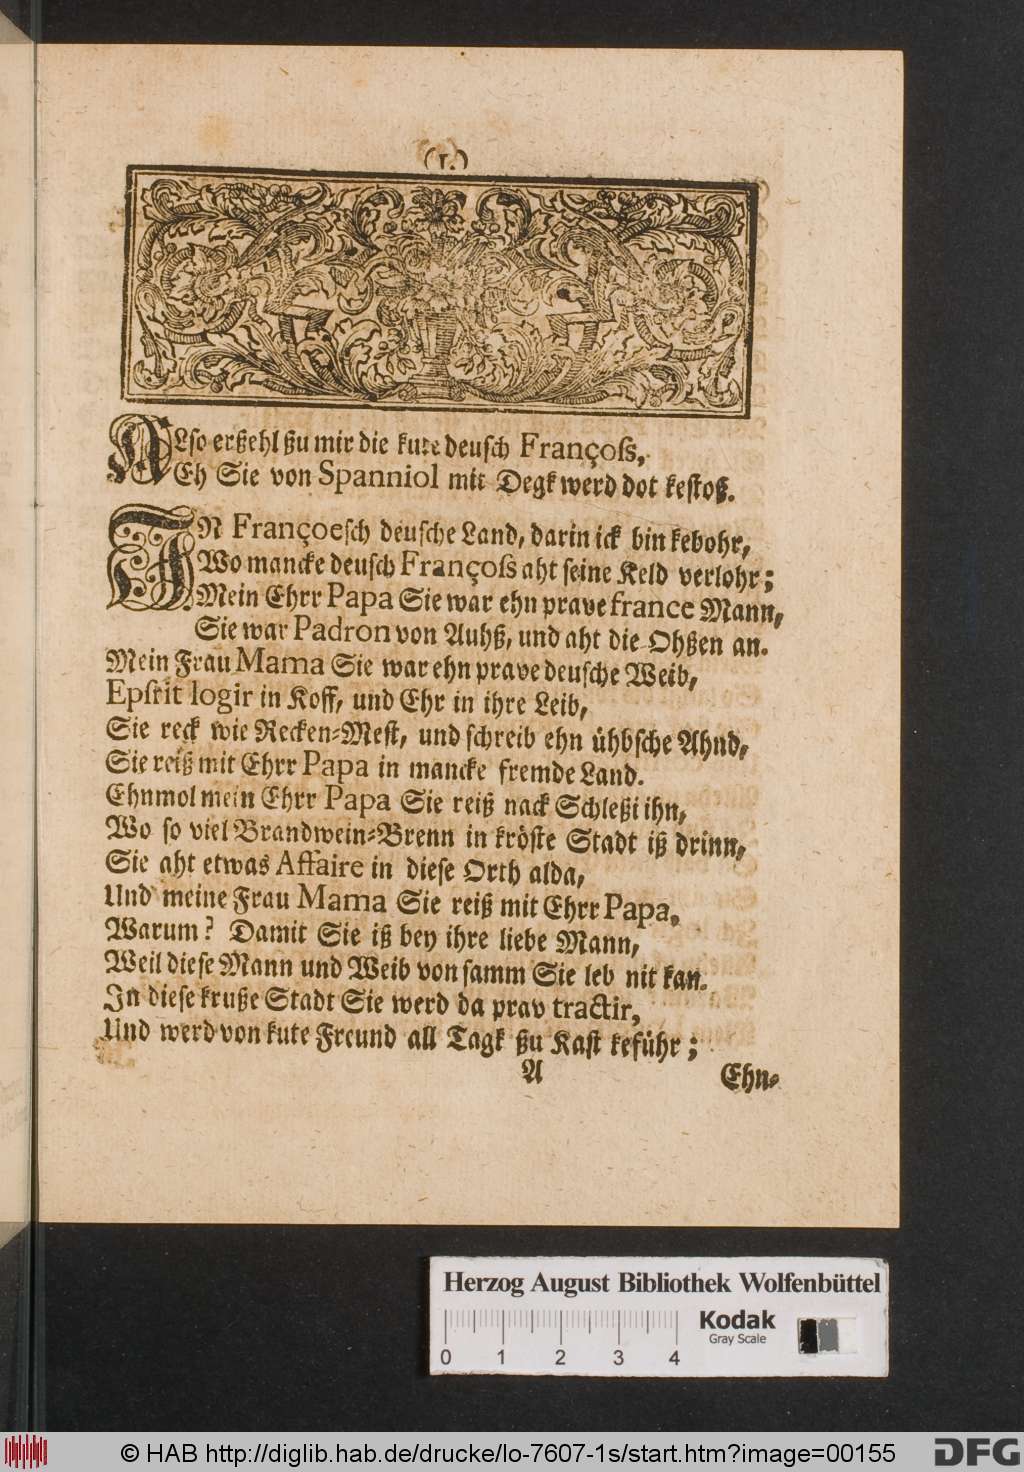 (1.)
ALso erßehl ßu mir die kute deusch Françoss,
Eh Sie von Spanniol mit Degk werd dot kestoß.
IN Françoesch deusche Land, darin ick bin kebohr,
Wo mancke deusch Françoss aht seine Keld verlohr;
Mein Ehrr Papa Sie war ehn prave france Mann,
Sie war Padron von Auhß, und aht die Ohßen an.
Mein Frau Mama Sie war ehn prave deusche Weib,
Epsrit logir in Koff, und Ehr in ihre Leib,
Sie reck wie Recken-Mest, und schreib ehn ühbsche Ahnd,
Sie reiß mit Ehrr Papa in mancke fremde Land.
Ehnmol mein Ehrr Papa Sie reiß nack Schleßi ihn,
Wo so viel Brandwein-Brenn in kröste Stadt iß drinn,
Sie aht etwas Affaire in diese Orth alda,
Und meine Frau Mama Sie reiß mit Ehrr Papa.
Warum? Damit Sie iß bey ihre liebe Mann,
Weil diese Mann und Weib von samm Sie leb nit kan.
In diese kruße Stadt Sie werd da prav tractir,
Und werd von kute Freund all Tagk ßu Kast keführ;
A
Ehn-
Herzog August Bibliothek Wolfenbüttel
Kodak
Gray Scale
0 1 2 3 4
© HAB http://diglib.hab.de/drucke/lo-7607-1s/start.htm?image=00155
DFG